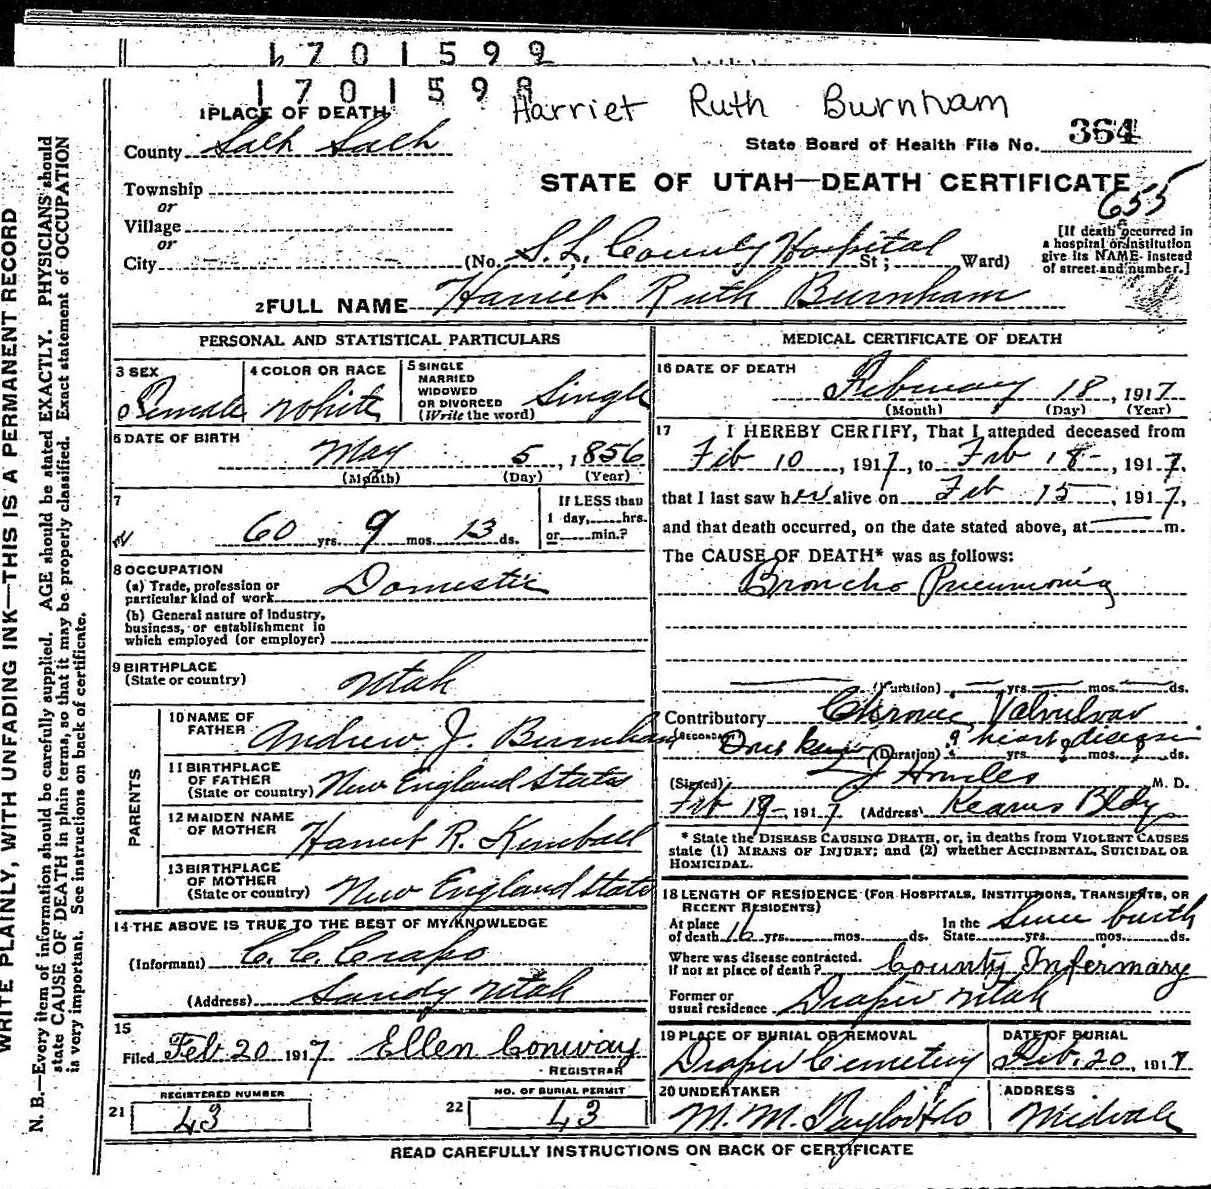 1701599
1701599
Harriet Ruth Burnham
1 PLACE OF DEATH
State Board of Health File No. 364
County Salt Lake
STATE OF UTAH—DEATH CERTIFICATE
655
Township
or
Village
or
City (No. S. L. County Hospital St; Ward)
[If death occurred in
a hospital or institution
give its NAME instead
of street and number.]
2 FULL NAME Harriet Ruth Burnham
PERSONAL AND STATISTICAL PARTICULARS
3 SEX
Female
4 COLOR OR RACE
White
5 SINGLE
MARRIED
WIDOWED
OR DIVORCED
(Write the word)
Single
6 DATE OF BIRTH
May 5, 1856
(Month) (Day) (Year)
7
60 yrs. 9 mos. 13 ds.
If LESS than
1 day, hrs.
or min.?
8 OCCUPATION
(a) Trade, profession or
particular kind of work Domestic
(b) General nature of industry,
business, or establishment in
which employed (or employer)
9 BIRTHPLACE
(State or country)
Utah
PARENTS
10 NAME OF
FATHER Andrew J. Burnham
11 BIRTHPLACE
OF FATHER
(State or country) New England States
12 MAIDEN NAME
OF MOTHER Harriet R. Kimball
13 BIRTHPLACE
OF MOTHER
(State or country) New England States
14 THE ABOVE IS TRUE TO THE BEST OF MY KNOWLEDGE
(Informant) C. C. Crapo
(Address) Sandy Utah
15
Filed Feb 20 1917 Ellen Conway
REGISTRAR
REGISTERED NUMBER
21 43
NO. OF BURIAL PERMIT
22 43
MEDICAL CERTIFICATE OF DEATH
16 DATE OF DEATH
February 18, 1917
(Month) (Day) (Year)
17 I HEREBY CERTIFY, That I attended deceased from
Feb 10, 1917, to Feb 18, 1917,
that I last saw her alive on Feb 15, 1917,
and that death occurred, on the date stated above, at m.
The CAUSE OF DEATH* was as follows:
Broncho Pneumonia
(Duration) yrs. mos. ds.
Contributory Chronic Valvular
(SECONDARY) (Duration) ? heart disease yrs. mos. ds.
(Signed) M. D.
Feb 19 1917 (Address) Kearns Bldg
* State the DISEASE CAUSING DEATH, or, in deaths from VIOLENT CAUSES
state (1) MEANS OF INJURY; and (2) whether ACCIDENTAL, SUICIDAL OR
HOMICIDAL.
18 LENGTH OF RESIDENCE (FOR HOSPITALS, INSTITUTIONS, TRANSIENTS, OR
RECENT RESIDENTS)
At place
of death 16 yrs. mos. ds.
In the
State Since birth yrs. mos. ds.
Where was disease contracted.
if not at place of death? County Infermary
Former or
usual residence Draper Utah
19 PLACE OF BURIAL OR REMOVAL
Draper Cemetery
DATE OF BURIAL
Feb. 20, 1917
20 UNDERTAKER
M. M. Taylor & Co
ADDRESS
Midvale
READ CAREFULLY INSTRUCTIONS ON BACK OF CERTIFICATE
WRITE PLAINLY, WITH UNFADING INK—THIS IS A PERMANENT RECORD
N. B.—Every item of information should be carefully supplied. AGE should be stated EXACTLY. PHYSICIANS should
state CAUSE OF DEATH in plain terms, so that it may be properly classified. Exact statement of OCCUPATION
is very important. See instructions on back of certificate.